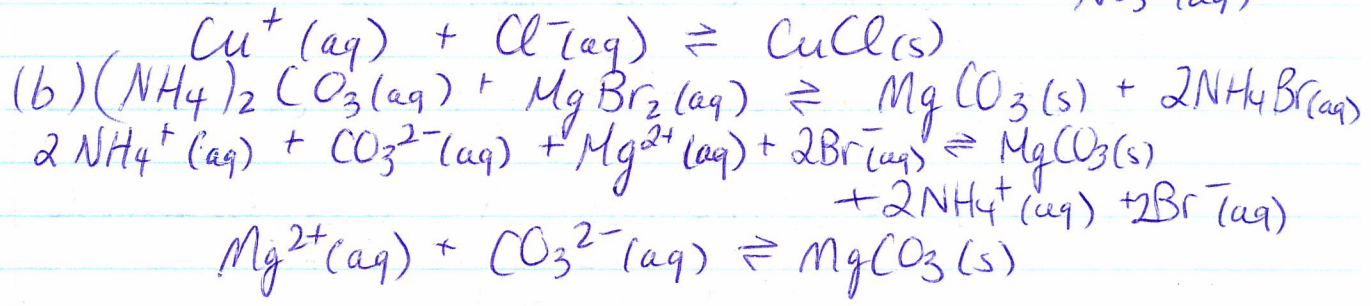 Cu⁺ (aq) + Cl⁻(aq) ⇌ CuCl(s)
(b) (NH₄)₂CO₃(aq) + MgBr₂(aq) ⇌ MgCO₃(s) + 2NH₄Br(aq)
2NH₄⁺(aq) + CO₃²⁻(aq) + Mg²⁺(aq) + 2Br⁻(aq) ⇌ MgCO₃(s)
+2NH₄⁺(aq) +2Br⁻(aq)
Mg²⁺(aq) + CO₃²⁻(aq) ⇌ MgCO₃(s)